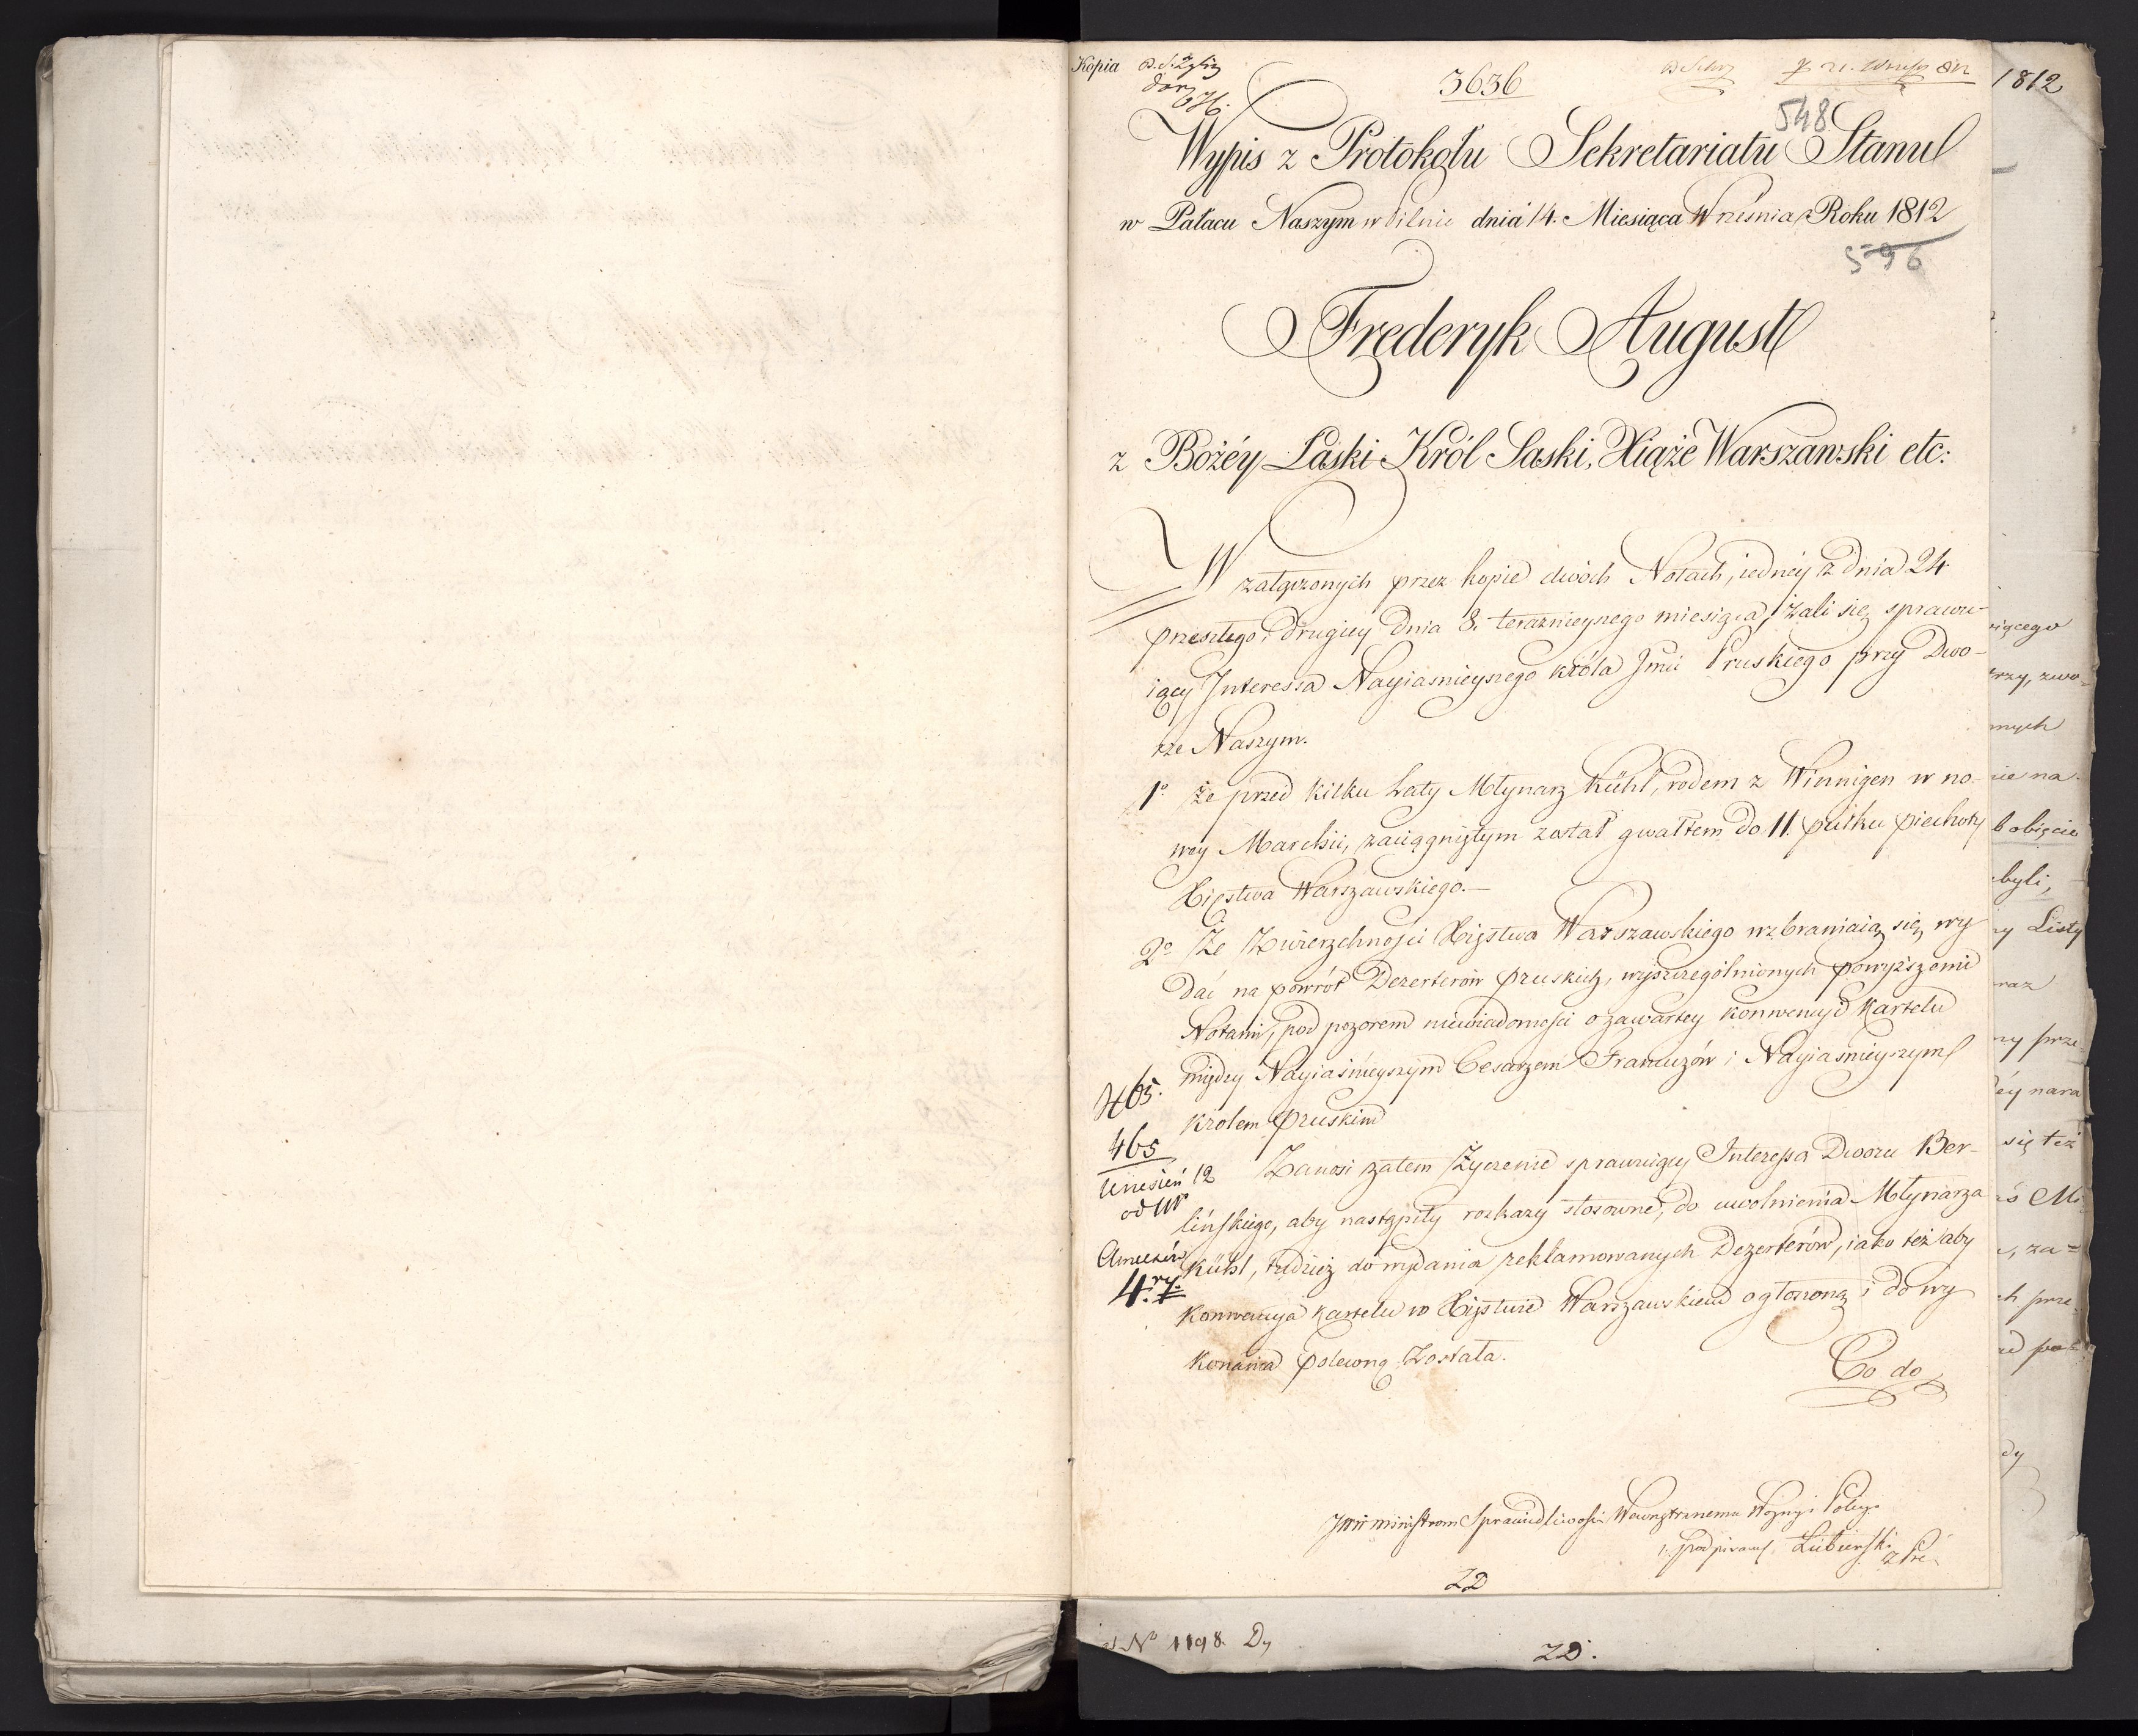 Kopia
3636
548
1812
Wypis z Protokołu Sekretariatu Stanu
w Pałacu Naszym w Pilnie dnia 14. Miesiąca Września Roku 1812
596
Frederyk August
z Bożéy Łaski Król Saski, Xiąże Warszawski etc:
W załączonych przez kopie dwóch Notach, iednéy z dnia 24
przeszłego, drugiey dnia 8. teraznieyszego miesiąca, żali się sprawu-
iący Interessa Nayiasnieyszego króla Jmci Pruskiego przy Dwo-
rze Naszym.
1º że przed kilku Laty Młynarz Kühl, rodem z Winnigen w no-
wey Marchii, zaciągniętym został gwałtem do 11. pułku piechoty
Xięstwa Warszawskiego.—
2º Że Zwierzchności Xięstwa Warszawskiego wzbraniaią się wy
dać na powrót Dezerterów pruskich, wyszczególnionych powyższemi
Notami, pod pozorem niewiadomości o zawartey konwencyi kartelu
między Nayiaśnieyszym Cesarzem Francuzów i Nayiaśnieyszym
krolem pruskim
465.
465
Zanosi zatem życzenie sprawuiący Interessa Dworu Ber-
lińskiego, aby nastąpiły rozkazy stosowne, do uwolnienia Młynarza
Kühl, tudzież do wydania reklamowanych Dezerterów, iako też aby
konwencya kartelu w Xięstwie Warszawskiem ogłoszoną i do wy
konania poleconą została.
Wrzesień 12
4.ry.
Co do
JWW Ministrom Sprawiedliwości Wewnętrznemu Woyny i Policyi
podpisany Łubieński
ZD
Nº 1198. Dy
ZD.
iącego
rzy, zwo=
mych
nie na
b obięcie
byli,
ny Listy
raz
ny prze
éy nara
się też
, za=
ch prze
ad po
dy